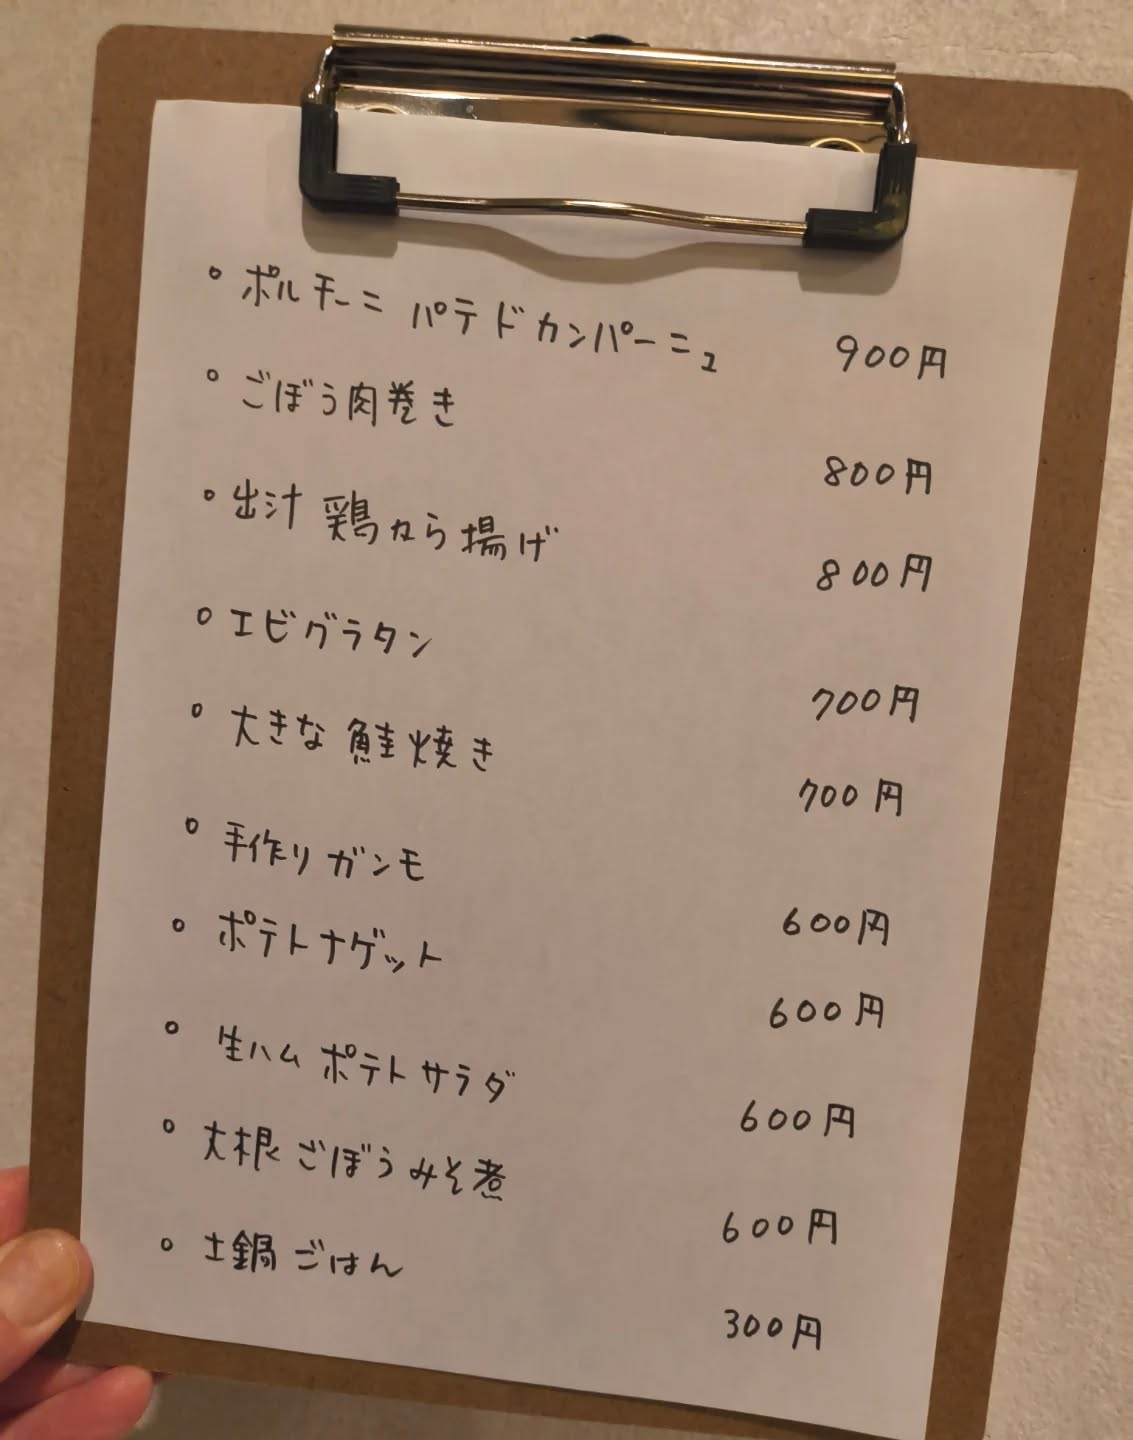 ・ポルチーニ パテドカンパーニュ 900円
・ごぼう肉巻き 800円
・出汁 鶏から揚げ 800円
・エビグラタン 700円
・大きな 鮭焼き 700円
・手作りガンモ 600円
・ポテトナゲット 600円
・生ハム ポテトサラダ 600円
・大根 ごぼうみそ煮 600円
・土鍋 ごはん 300円